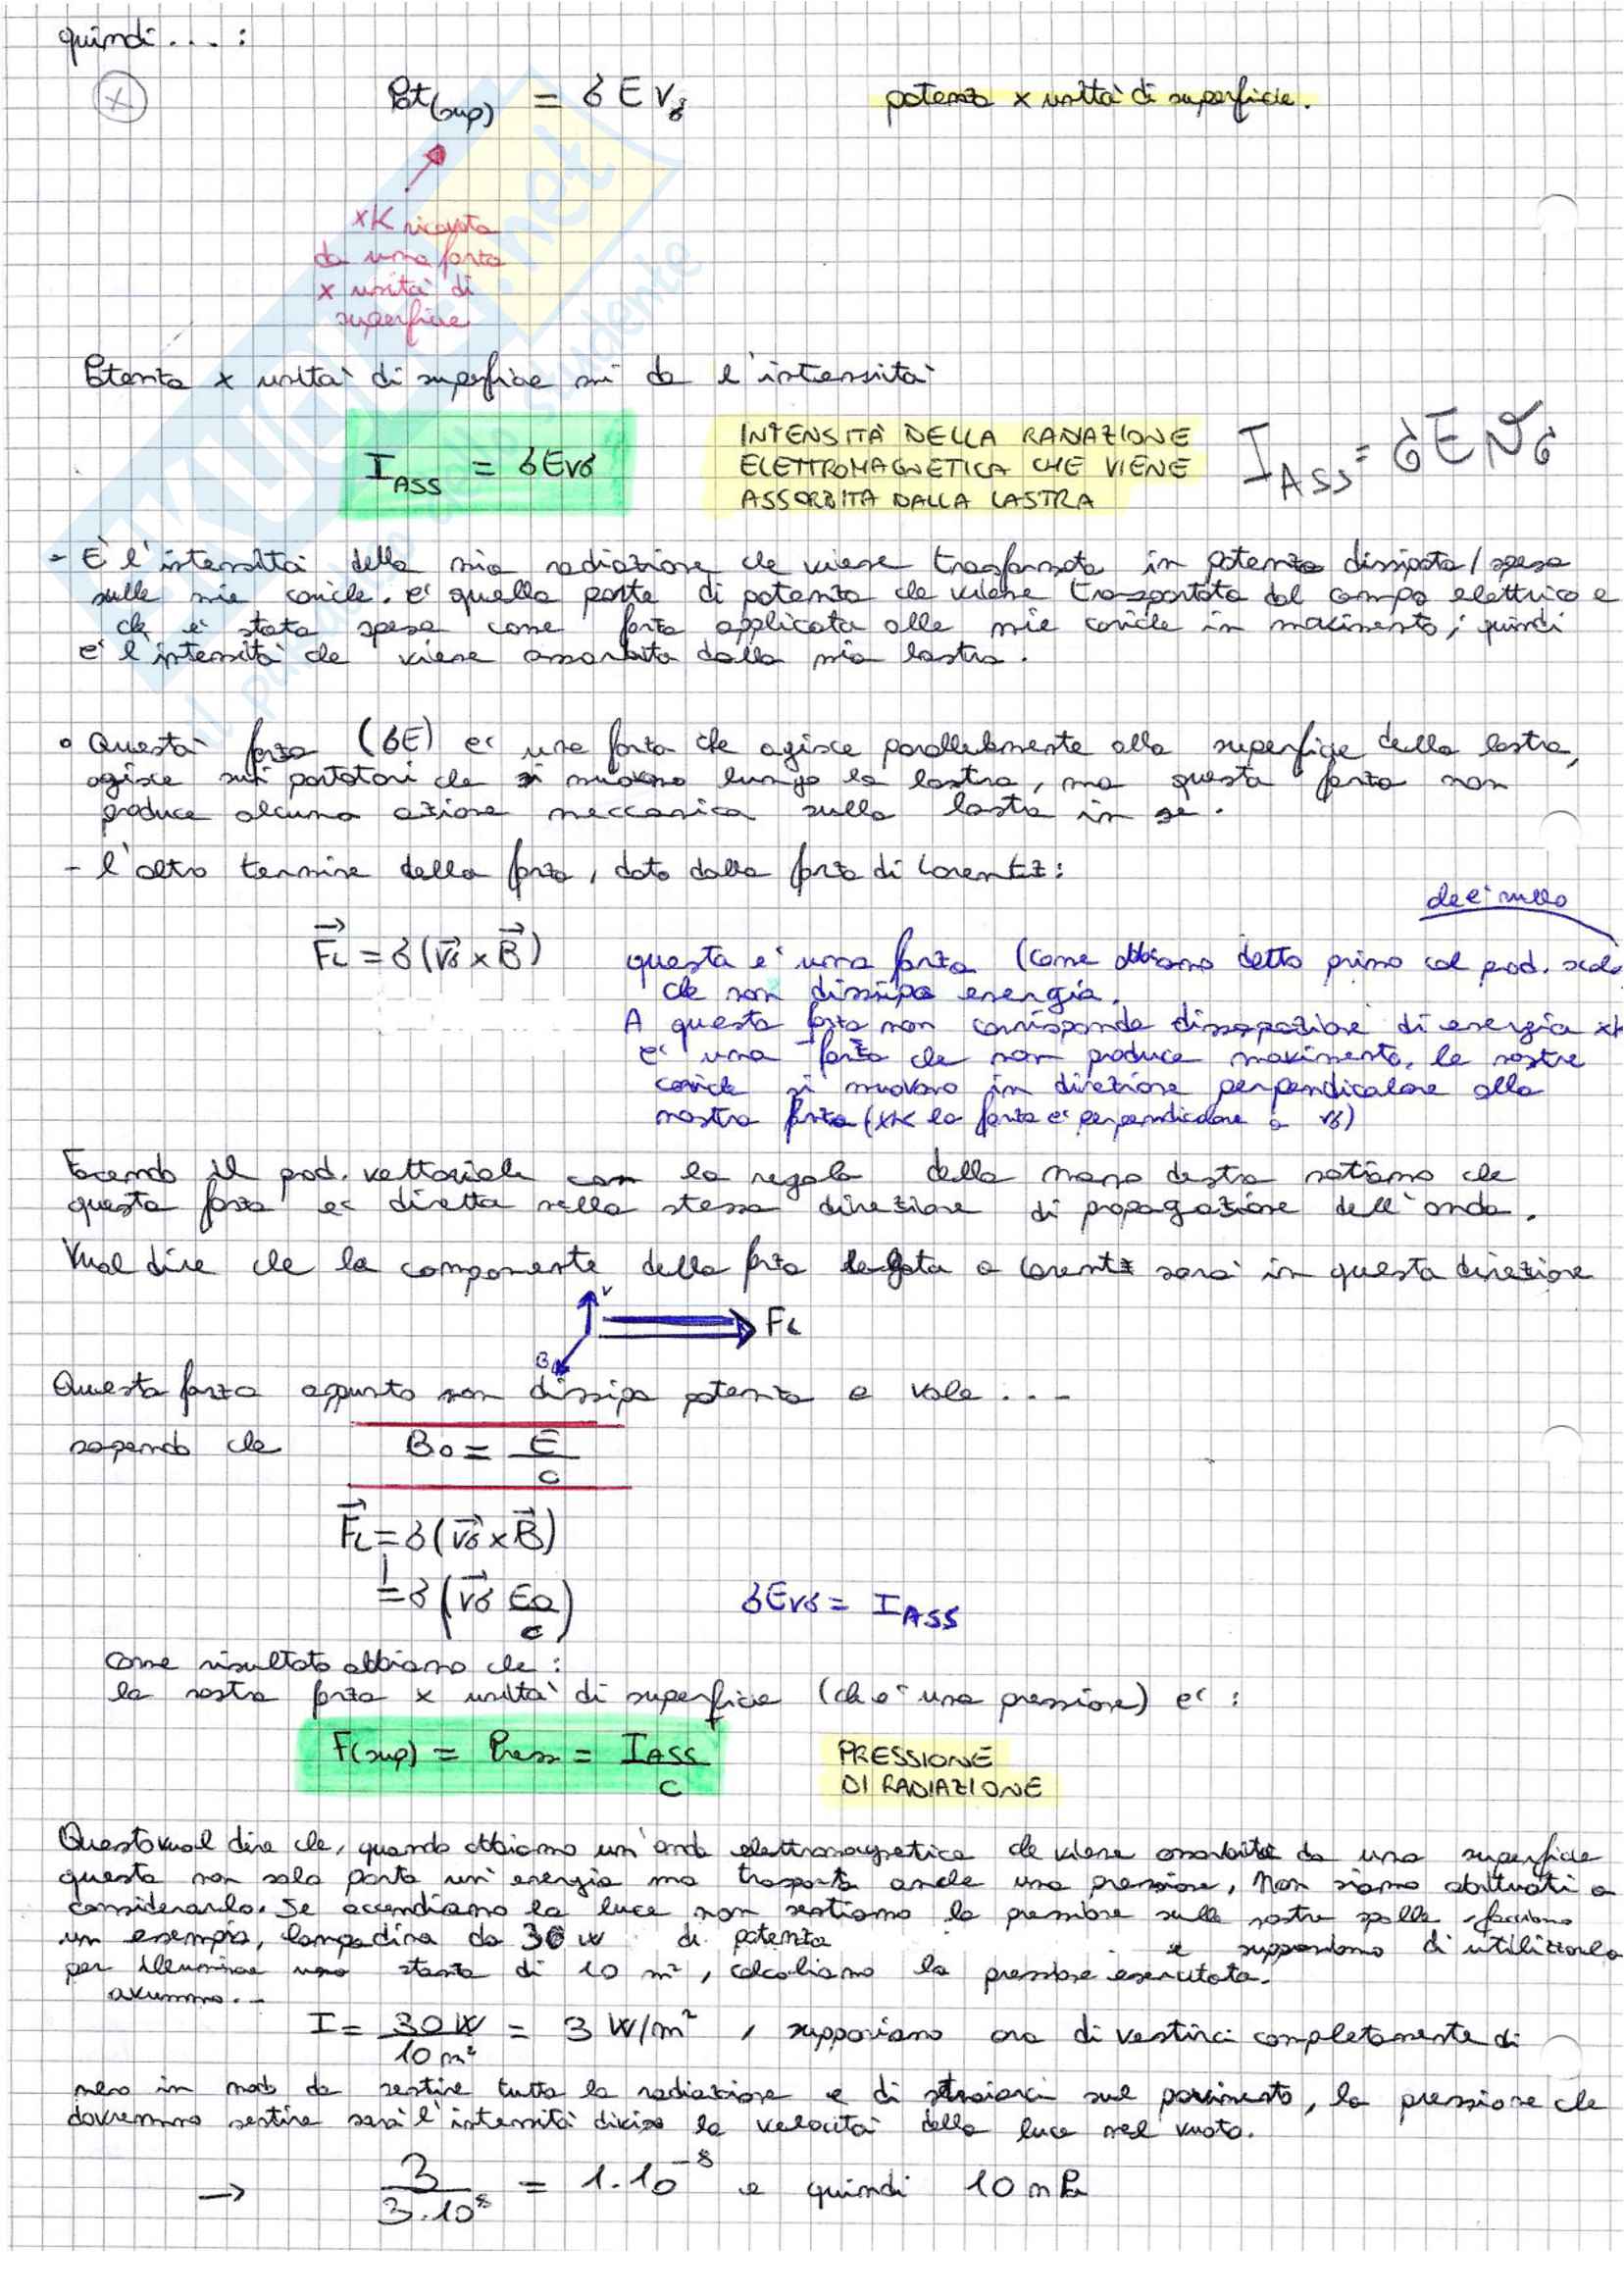 quindi .... :
(X) Pot(sup) = δ E vδ potenza x unità di superficie.
xK ricavata
da una forza
x unità di
superficie
Potenza x unità di superficie mi da l'intensità
I ASS = δEvδ INTENSITÀ DELLA RADIAZIONE
ELETTROMAGNETICA CHE VIENE
ASSORBITA DALLA LASTRA
I ASS = δEvδ
- È l'intensità della mia radiazione che viene trasformata in potenza dissipata / spesa
sulle mie cariche. e' quella parte di potenza che viene trasportata dal campo elettrico e
ch è stata spesa come forza applicata alle mie cariche in movimento; quindi
e' l'intensità che viene assorbita dalla mia lastra.
• Questa forza (δE) e' una forza che agisce parallelamente alla superficie della lastra,
agisce sui portatori che si muovono lungo la lastra, ma questa forza non
produce alcuna azione meccanica sulla lastra in se.
- l'altro termine della forza, dato dalla forza di Lorentz:
che e' nullo
F⃗L = δ(v⃗δ x B⃗) questa e' una forza (come abbiamo detto prima col prod. scala
che non dissipa energia.
A questa forza non corrisponde dissipazione di energia xk
e' una forza che non produce movimento, le nostre
cariche si muovono in direzione perpendicolare alla
nostra forza (xK la forza e' perpendicolare a vδ)
Facendo il prod. vettoriale con la regola della mano destra notiamo che
questa forza e' diretta nella stessa direzione di propagazione dell'onda.
Vuol dire che la componente della forza legata a Lorentz sarà in questa direzione
v
FL
B
Questa forza appunto non dissipa potenza e vale ...
sapendo che B0 = E/c
F⃗L = δ(v⃗δ x B⃗)
= δ(v⃗δ E0/c) δEvδ = I ASS
come risultato abbiamo che:
la nostra forza x unità di superficie (ch e' una pressione) e' :
F(sup) = Press = I ASS/c PRESSIONE
DI RADIAZIONE
Questo vuol dire che, quando abbiamo un'onda elettromagnetica che viene assorbita da una superficie
questa non solo porta un'energia ma trasporta anche una pressione, Non siamo abituati a
considerarla. Se accendiamo la luce non sentiamo la pressione sulle nostre spalle, facciamo
un esempio, lampadina da 30 W di potenza e supponiamo di utilizzarla
per illuminare una stanza di 10 m², calcoliamo la pressione esercitata.
avremmo...
I = 30 W/10 m² = 3 W/m² , supponiamo ora di vestirci completamente di
nero in modo da sentire tutta la radiazione e di straiarci sul pavimento, la pressione che
dovremmo sentire sarà l'intensità diviso la velocità della luce nel vuoto.
→ 3/3·10⁸ = 1·10⁻⁸ e quindi 10 nPa